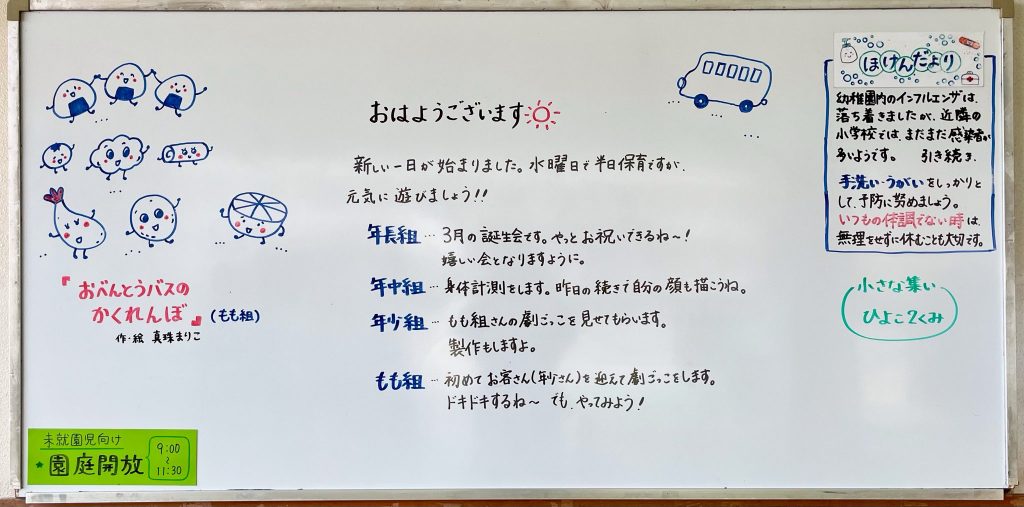 おはようございます
新しい一日が始まりました。水曜日で半日保育ですが、
元気に遊びましょう!!
年長組…3月の誕生会です。やっとお祝いできるね〜!
嬉しい会となりますように。
年中組…身体計測をします。昨日の続きで自分の顔も描こうね。
年少組…もも組さんの劇ごっこを見せてもらいます。
製作もしますよ。
もも組…初めてお客さん(年少さん)を迎えて劇ごっこをします。
ドキドキするね〜 でも、やってみよう!
『おべんとうバスの
かくれんぼ』(もも組)
作・絵 真珠まりこ
未就園児向け
園庭開放
9:00
〜
11:30
ほけんだより
幼稚園内のインフルエンザは、
落ち着きましたが、近隣の
小学校では、まだまだ感染者が
多いようです。 引き続き、
手洗い・うがいをしっかりと
して、予防に努めましょう。
いつもの体調でない時は、
無理をせずに休むことも大切です。
小さな集い
ひよこ2くみ